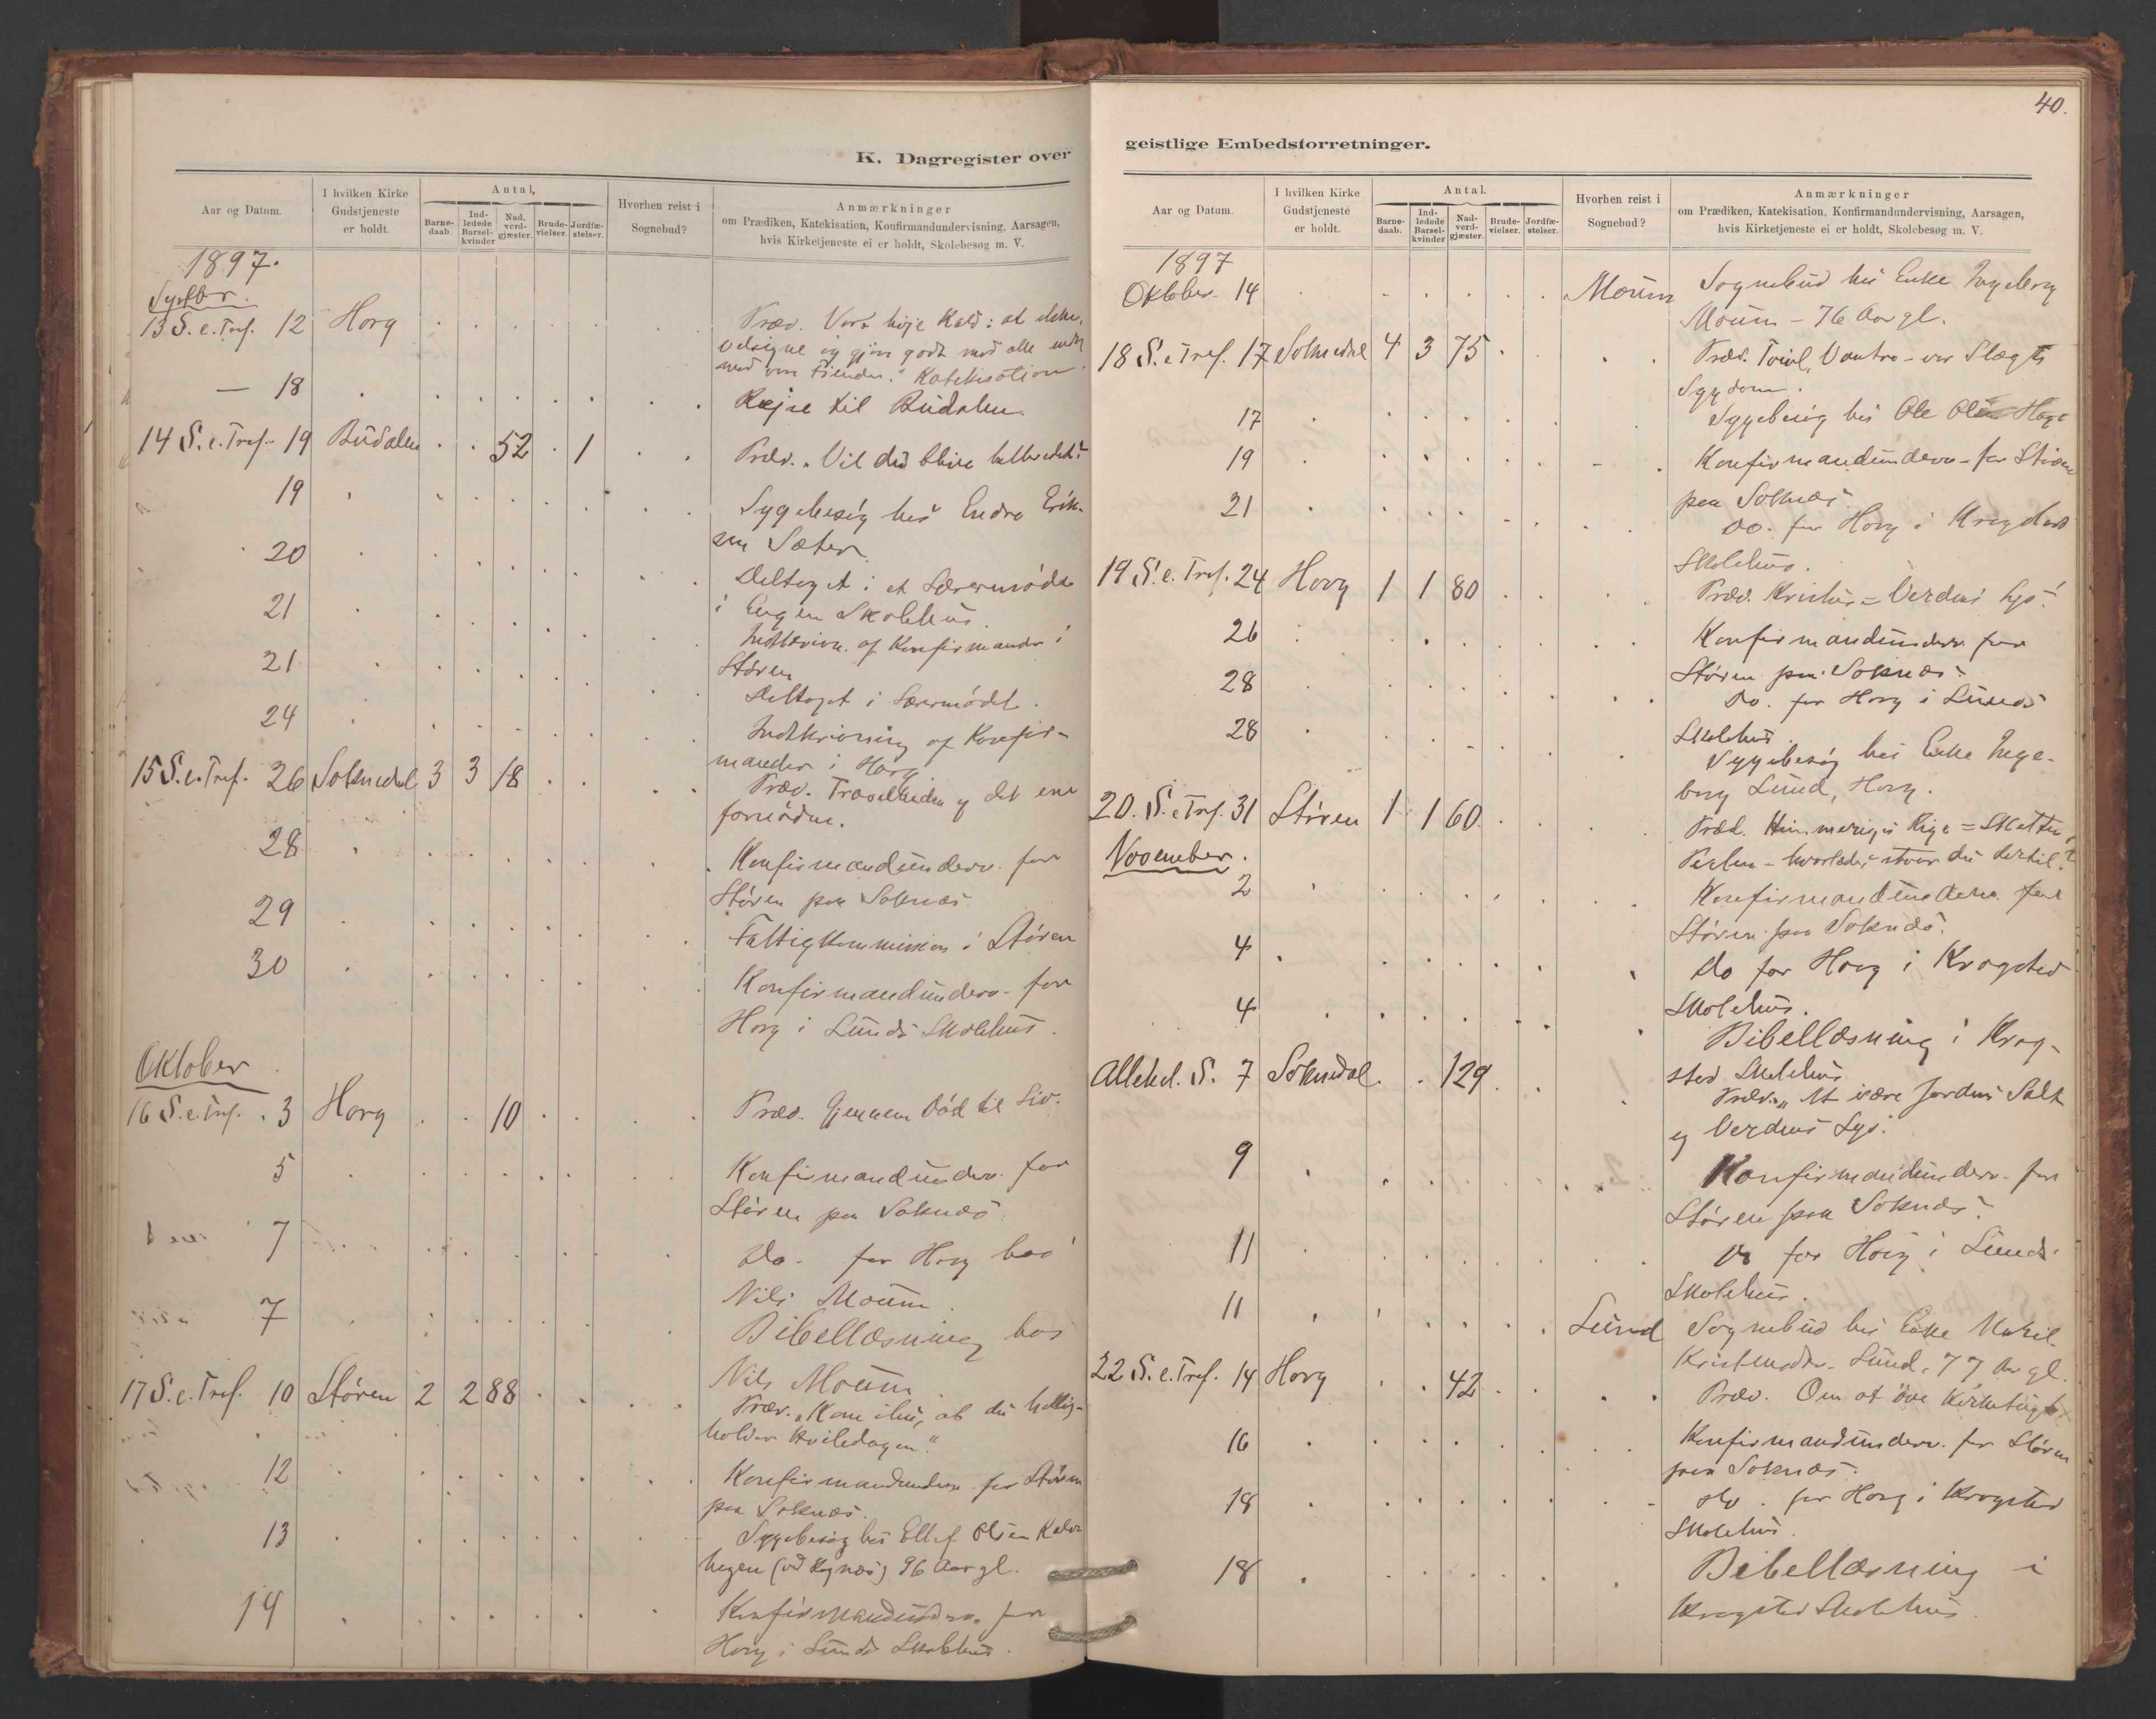 K. Dagregister over
Aar og Datum.
I hvilken Kirke Gudstjeneste er holdt.
Antal.
Barnedaab.
Indledede Barselkvinder
Nad. verdgjæster.
Brudevielser.
Jordfæstelser.
Hvorhen reist i Sognebud?
Anmærkninger
om Prædiken, Katekisation, Konfirmandundervisning, Aarsagen,
hvis Kirketjeneste ei er holdt, Skolebesøg m. V.
1897.
13 S. e. Tref. 12 Horg Præd. Vort høje Kald: at elske,
velsigne og gjøre godt mod alle endog
mod vore Fiender." Katekisation
— 18 Rejse til Budalen
14 S. e. Tref. 19 Budalen 52 1 Præd. „Vil du blive helbredet?
19 Sygebesøg hos Endre Erik-
sen Sæter
20 Deltoget i et Lærermøde
i Engen Skolehus.
21 Indskrivn. af Konfirmander i
Støren
21 Deltoget i Lærermødet.
24 Indskrivning af Konfir-
mander i Horg
15 S. e. Tref. 26 Soknedal 3 3 18 Præd. Travelheden og det ene
fornødne.
28 Konfirmandunderv. for
Støren paa Soknæs
29 Fattigkommission i Støren
30 Konfirmandunderv. for
Horg i Lunds Skolehus.
Oktober
16 S. e. Tref. 3 Horg 10 Præd. Gjennem Død til Liv.
5 Konfirmandunderv. for
Støren paa Soknæs.
7 Do. for Horg hos
Nils Moum.
7 Bibellæsning hos
Nils Moum
17 S. e. Tref. 10 Støren 2 2 88 Præd. „Kom ihu, at du hellig-
holder Hviledagen."
12 Konfirmandunderv. for Støren
paa Soknæs.
13 Sygebesøg hos Ellef Olsen
(ved Hognæs) 96 Aar gl.
14 Konfirmandunderv. for
Horg i Lunds Skolehus.
40.
geistlige Embedsforretninger.
Aar og Datum.
I hvilken Kirke Gudstjeneste er holdt.
Antal.
Barnedaab.
Indledede Barselkvinder
Nadverdgjæster.
Brudevielser.
Jordfæstelser.
Hvorhen reist i Sognebud?
Anmærkninger
om Prædiken, Katekisation, Konfirmandundervisning, Aarsagen,
hvis Kirketjeneste ei er holdt, Skolebesøg m. V.
1897
Oktober 14 Moum Sognebud hos Enke Ingeborg
Moum – 76 Aar gl.
18 S. e. Tref. 17 Soknedal 4 3 75 Præd. Tvivl, Vantro – vor Slægts
Sygdom.
17 Sygebesøg hos Ole
19 Konfirmandunderv. for Støren
paa Soknæs
21 Do. for Horg i Krogsted
Skolehus.
19 S. e. Tref. 24 Horg 1 1 80 Præd. Kristus = Verdens Lys!
26 Konfirmandunderv. for
Støren paa Soknæs
28 Do. for Horg i Lunds
Skolehus
28 Sygebesøg hos Enke Inge-
borg Lund, Horg.
20. S. e. Tref. 31 Støren 1 1 60 Præd. Himmeriges Rige = Skatten,
Perlen – hvorledes staar du dertil?
November.
2 Konfirmandunderv. for
Støren paa Soknæs.
4 Do for Horg i Krogsted
Skolehus.
4 Bibellæsning i Krog-
sted Skolehus
Allehel. S. 7 Soknedal 129 Præd. „At være Jordens Salt
og Verdens Lys.
9 Konfirmandunderv. for
Støren paa Soknæs.
11 Do for Horg i Lunds
Skolehus.
11 Lund Sognebud hos Enke Marit
Kristensdtr. Lund, 77 Aar gl.
22 S. e. Tref. 14 Horg 42 Præd. Om at øve Kirketugt
16 Konfirmandunderv. for Støren
paa Soknæs.
18 Do. for Horg i Krogsted
Skolehus.
18 Bibellæsning i
Krogsted Skolehus.